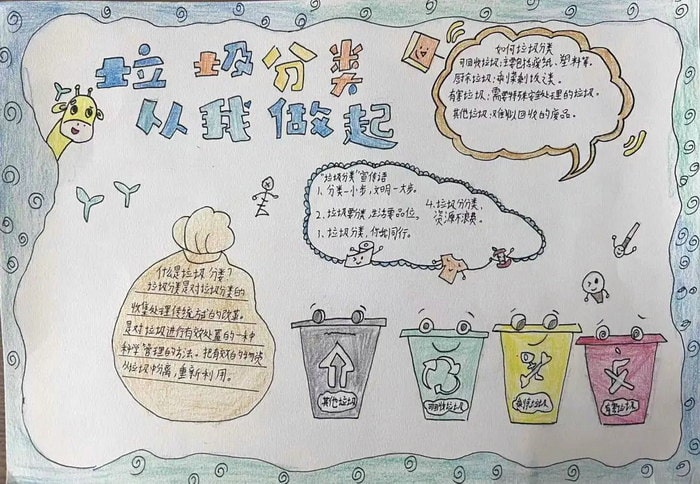 垃圾分类
从我做起
如何垃圾分类
可回收垃圾:主要包括废纸、塑料等。
厨余垃圾:剩菜剩饭之类。
有害垃圾:需要特殊安全处理的垃圾。
其他垃圾:难以回收的废品。
"垃圾分类"宣传语
1、分类一小步,文明一大步。
2、垃圾要分类,生活要品位。
1、垃圾分类,你我同行。
4、垃圾分分类,
资源不浪费。
什么是垃圾分类?
垃圾分类是对垃圾分类的
收集处理传统方式的改革。
是对垃圾进行有效处置的一种
科学管理的方法。把有效的物资
从垃圾中分离重新利用。
其他垃圾
可回收垃圾
有害垃圾